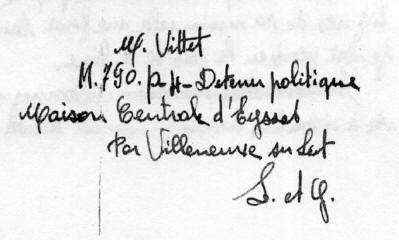 M. Vittet
M. 790. p. H - Detenu politique
Maison Centrale d'Eysses
Par Villeneuve su Lot
L. et G.